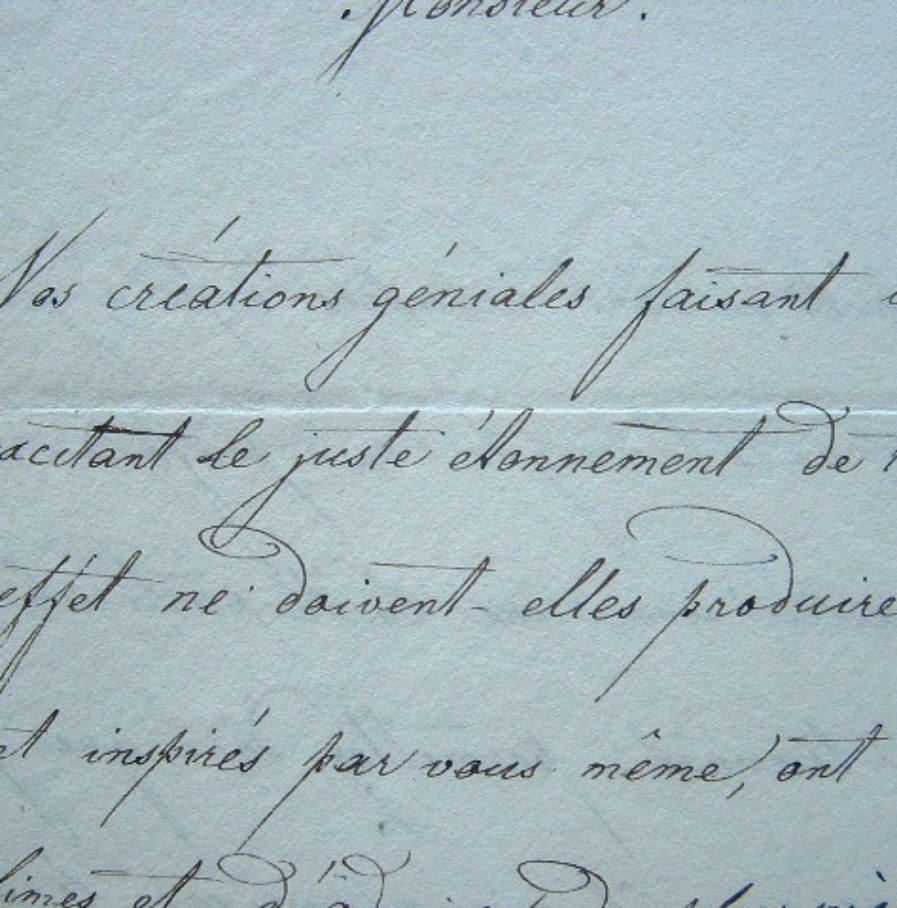 Monsieur.
Vos créations géniales faisant
excitant le juste étonnement de
effet ne doivent-elles produire
et inspirés par vous même, ont
et